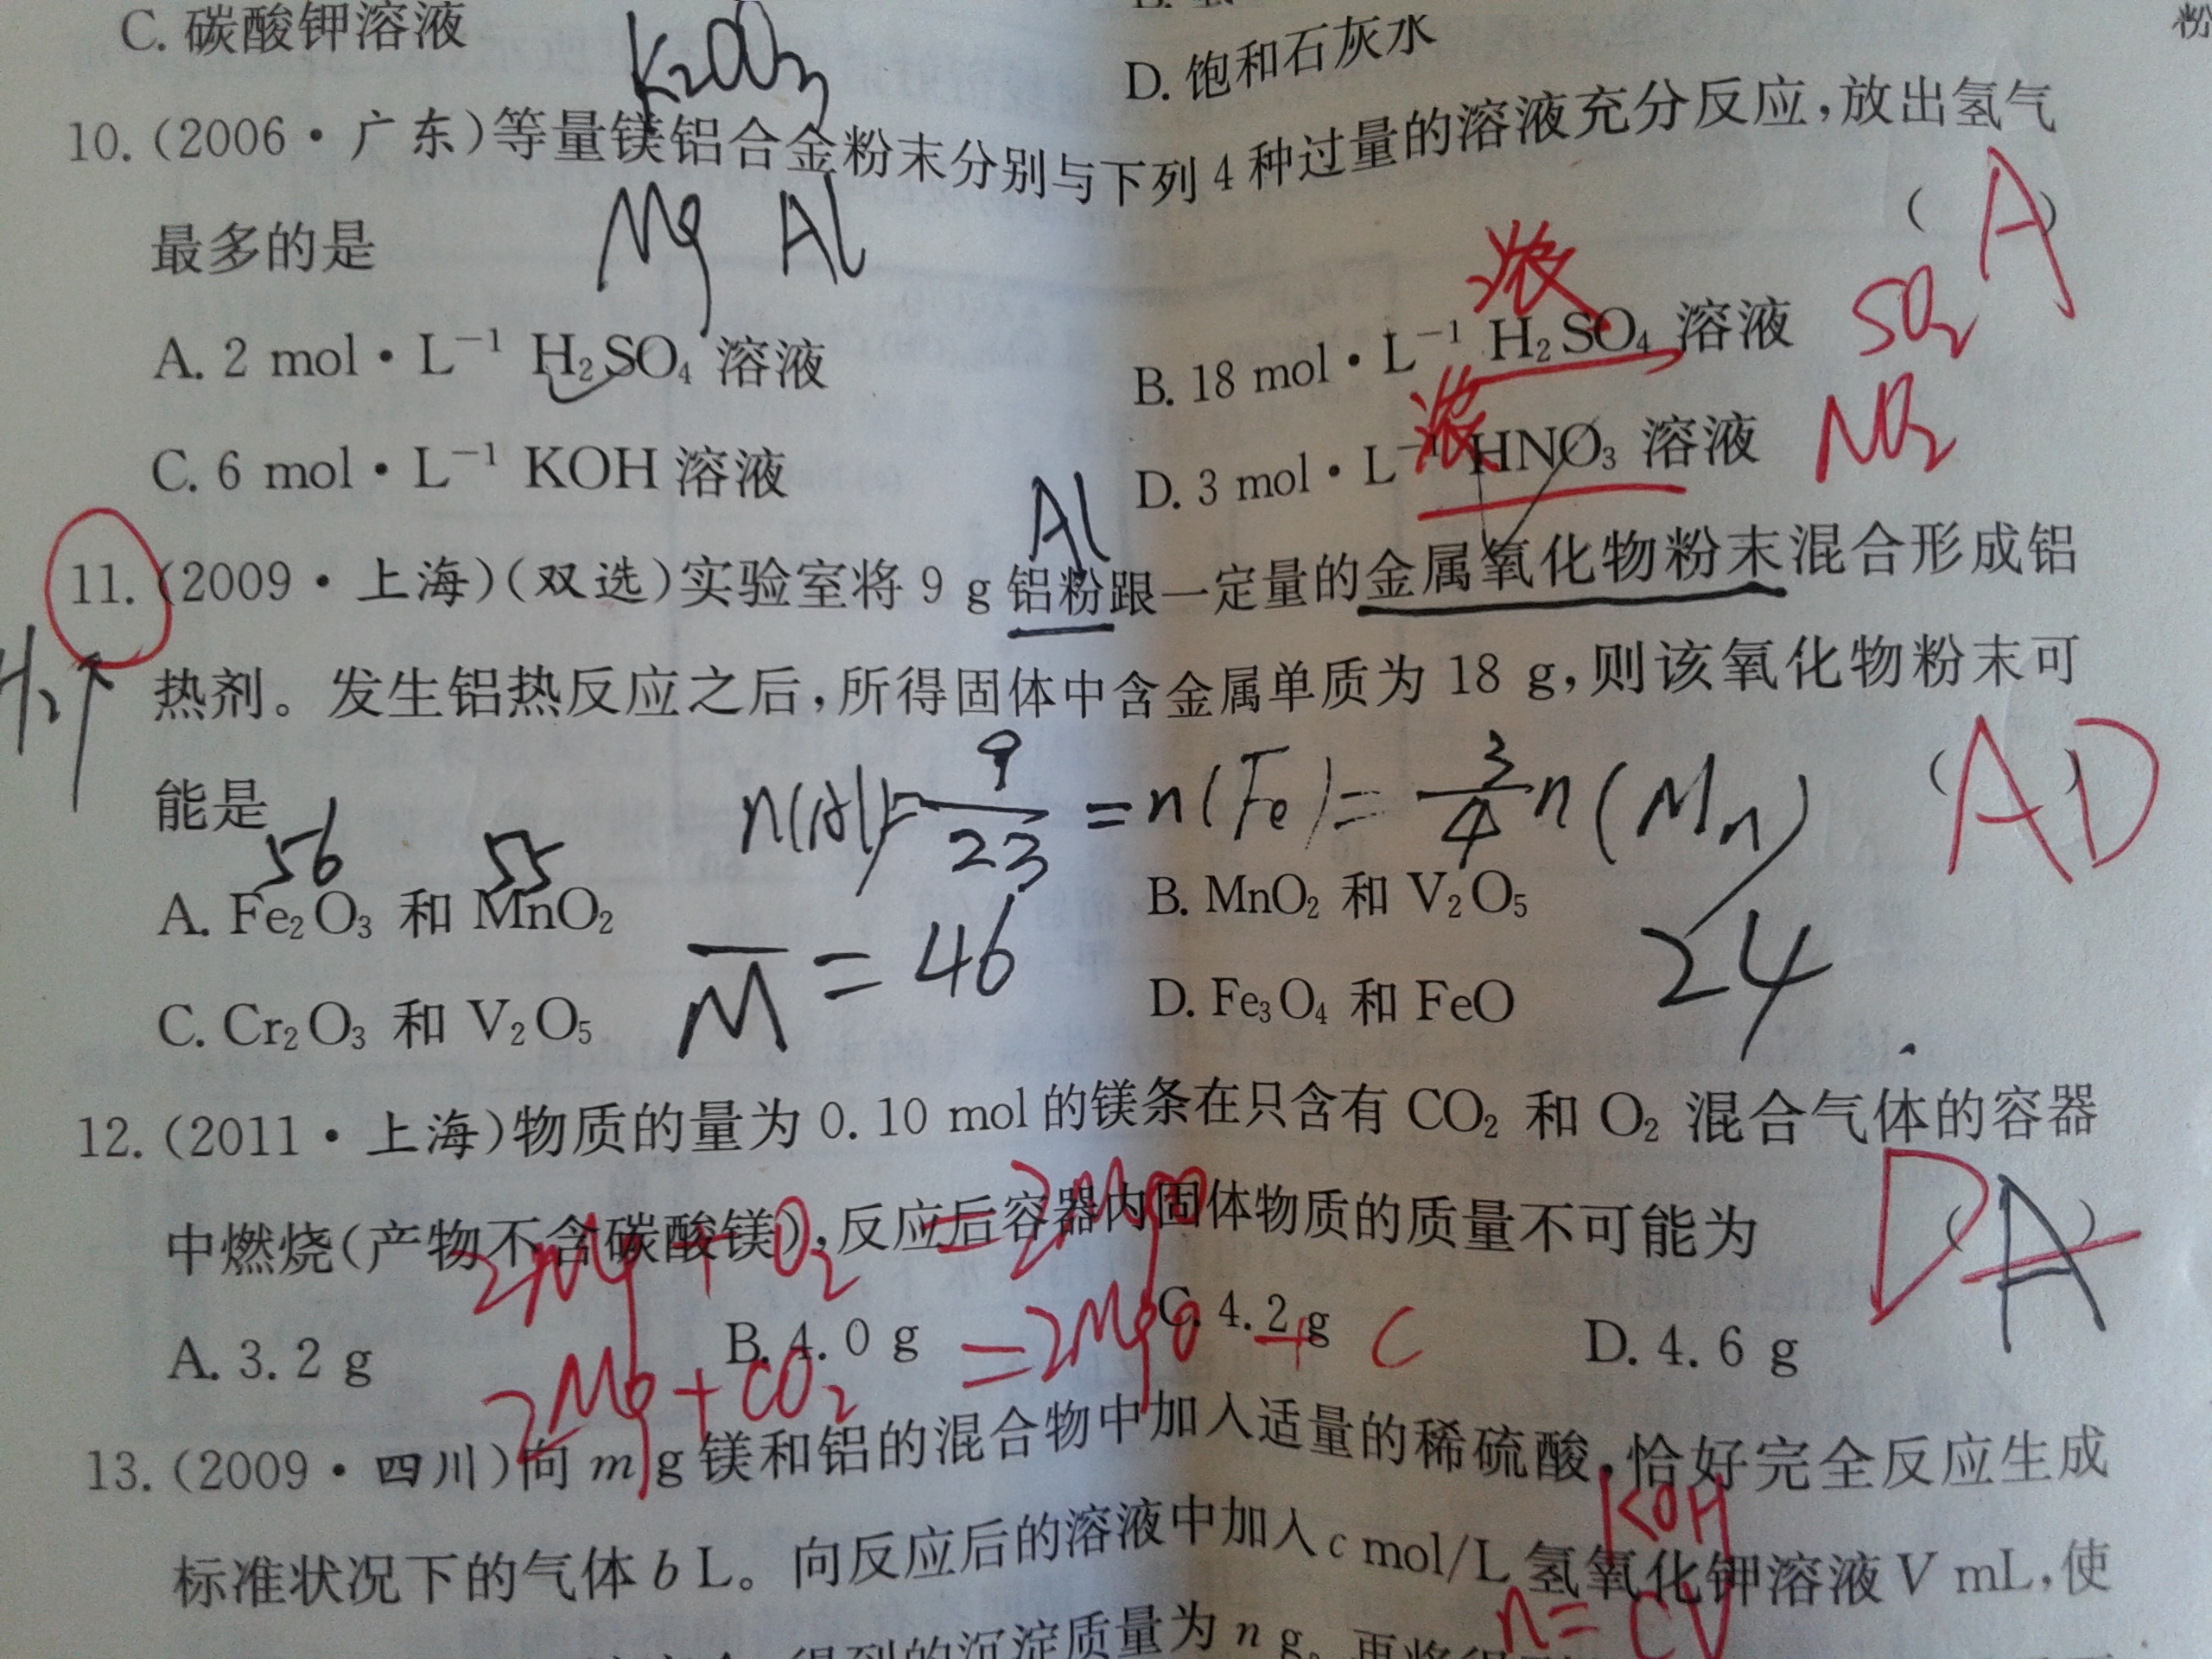 C. 碳酸钾溶液
K₂CO₃
D. 饱和石灰水
粉
10. (2006·广东)等量镁铝合金粉末分别与下列4种过量的溶液充分反应,放出氢气
最多的是 ( )
Mg Al
A
A. 2 mol·L⁻¹ H₂SO₄ 溶液
浓
B. 18 mol·L⁻¹ H₂SO₄ 溶液
SO₂
C. 6 mol·L⁻¹ KOH 溶液
浓
D. 3 mol·L⁻¹ HNO₃ 溶液
NO₂
Al
11. (2009·上海)(双选)实验室将 9 g 铝粉跟一定量的金属氧化物粉末混合形成铝
H₂↑
热剂。发生铝热反应之后,所得固体中含金属单质为 18 g,则该氧化物粉末可
能是 ( )
n(Al)=9/23=n(Fe)=3/4n(Mn)
AD
56 55
A. Fe₂O₃ 和 MnO₂
B. MnO₂ 和 V₂O₅
M̅=46
24
C. Cr₂O₃ 和 V₂O₅
D. Fe₃O₄ 和 FeO
12. (2011·上海)物质的量为 0.10 mol 的镁条在只含有 CO₂ 和 O₂ 混合气体的容器
中燃烧(产物不含碳酸镁),反应后容器内固体物质的质量不可能为 ( )
2Mg+O₂=2MgO
D A
A. 3.2 g B. 4.0 g C. 4.2 g D. 4.6 g
2Mg+CO₂=2MgO+C
13. (2009·四川)向 m g 镁和铝的混合物中加入适量的稀硫酸,恰好完全反应生成
KOH
标准状况下的气体 b L。向反应后的溶液中加入 c mol/L 氢氧化钾溶液 V mL,使
n=CV
得到的沉淀质量为 n g。再将得